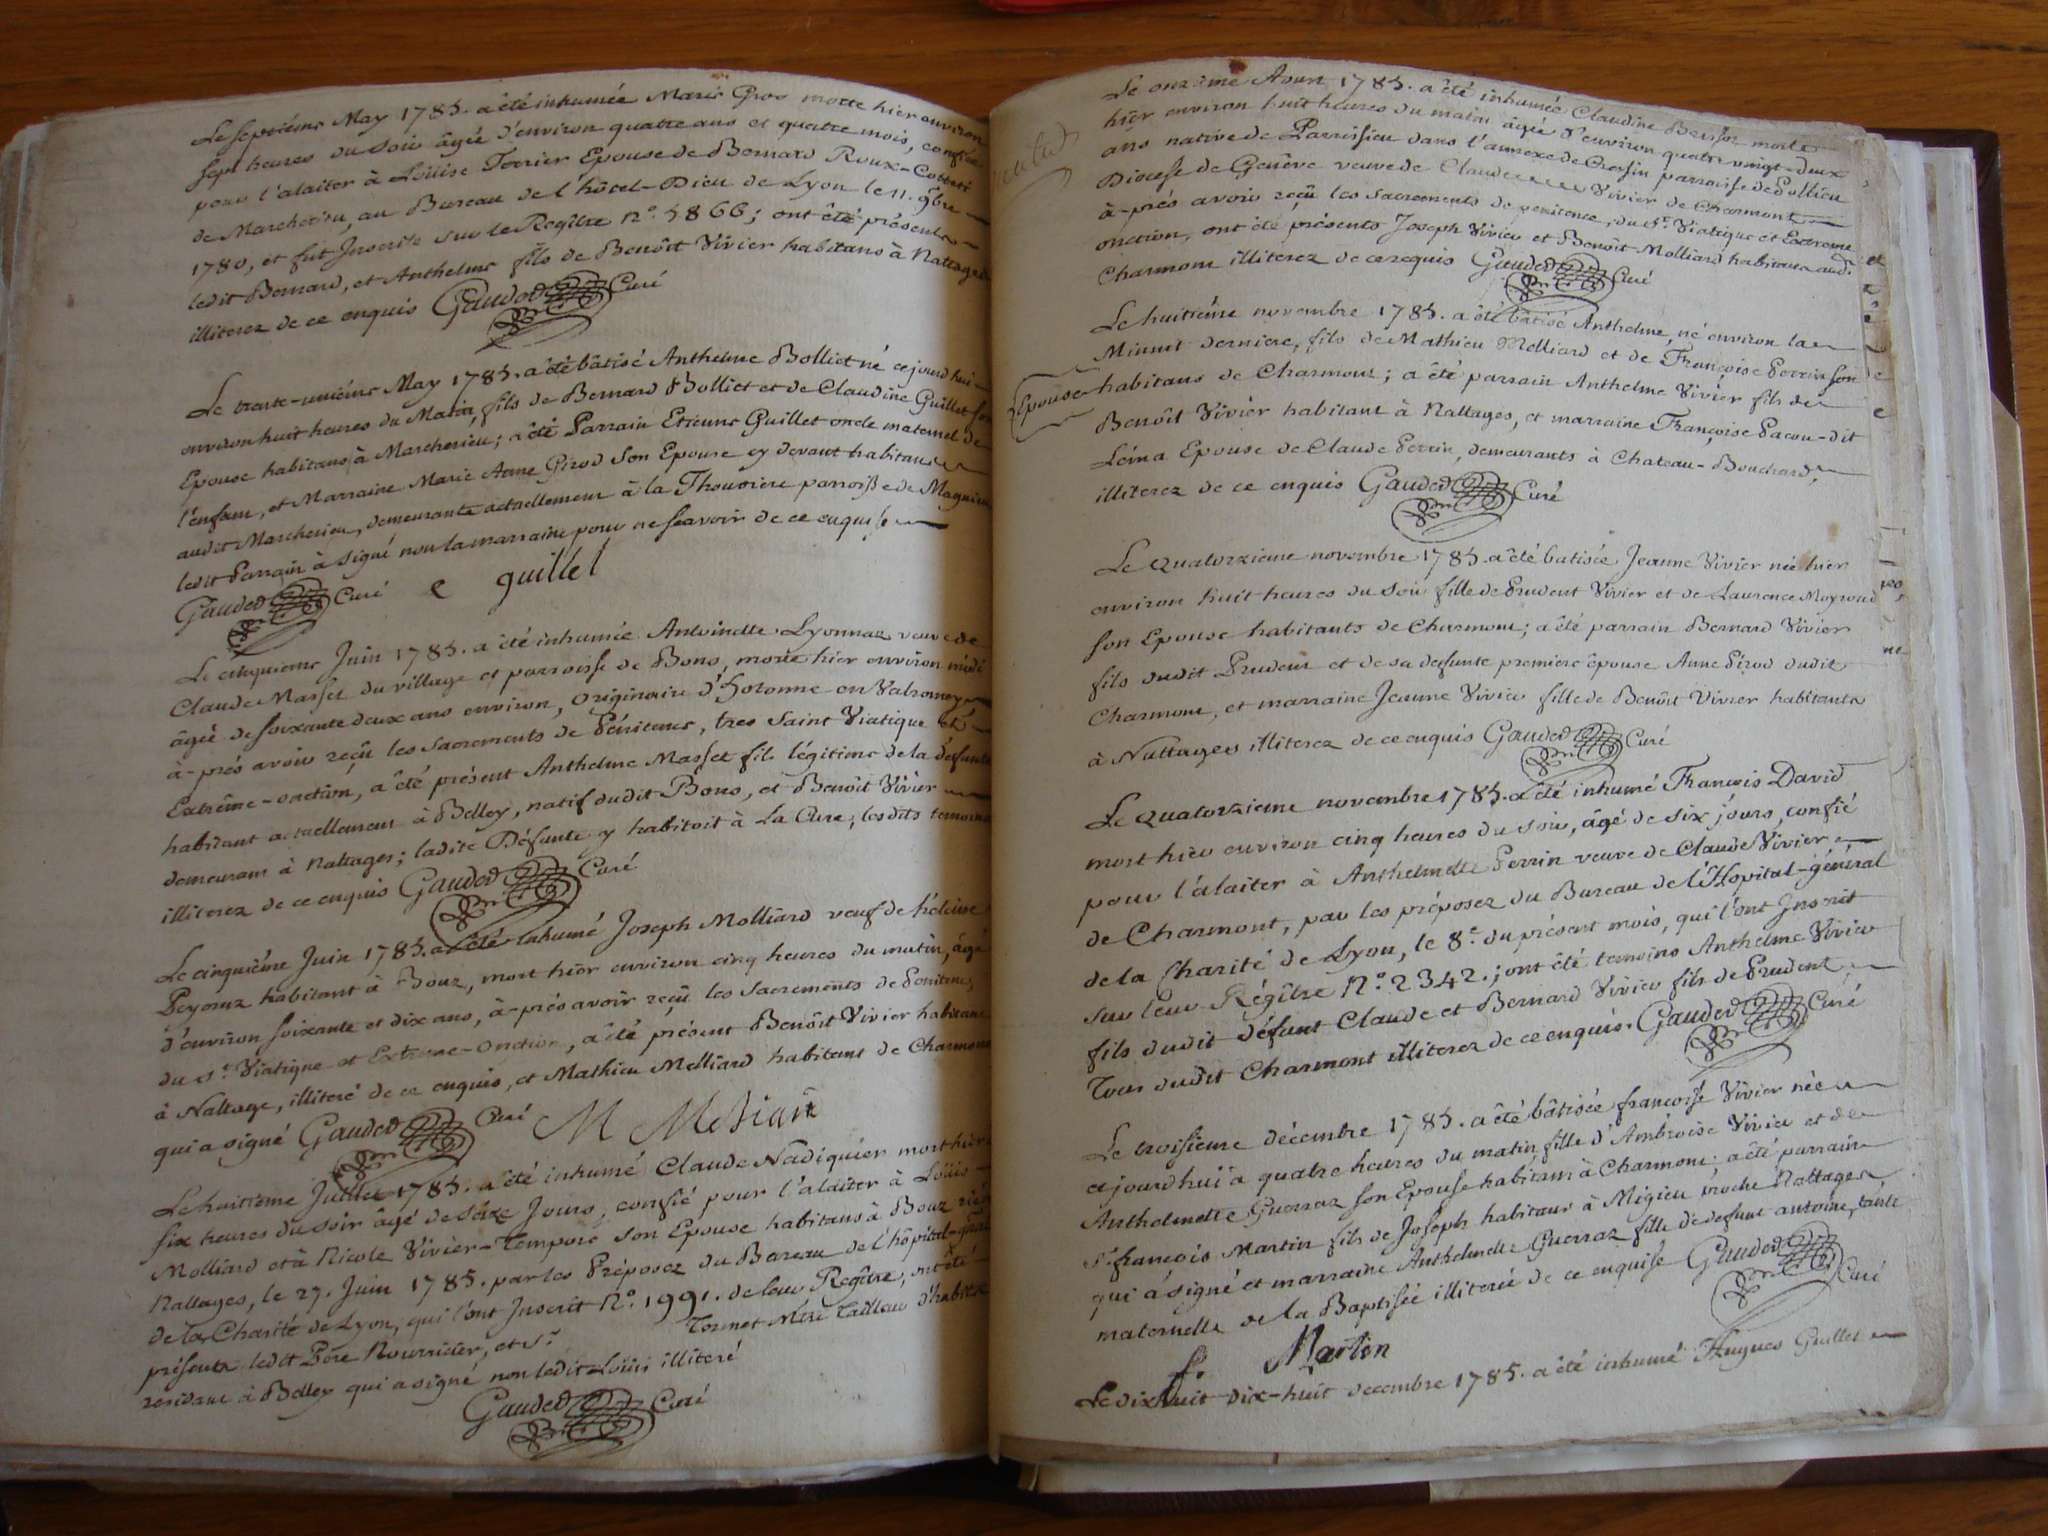 Le septiéme May 1785. a été inhumée Marie Gros morte hier environ
sept heures du soir âgée d'environ quatre ans et quatre mois, confiée
pour l'alaiter à Loüise Terrier Epouse de Bernard Roux-Cottet
de Marcherieu, au Bureau de l'hôtel-Dieu de Lyon le 11. 9bre
1780, et fut Inscrite sur le Regître n°. 5866; ont été présents
ledit Bernard, et Anthelme fils de Benoît Vivier habitans à Nattages
illiterez de ce enquis Gauded Curé
Le trente-uniéme May 1785. a été bâtisé Anthelme Bolliet né cejourd'hui
environ huit heures du Matin, fils de Bernard Bolliet et de Claudine Guillet son
Epouse habitans à Marcherieu; a été Parrain Etienne Guillet oncle maternel de
l'enfant, et Marraine Marie Anne Girod son Epouse cy devant habitans
audit Marcherieu, demeurants actuellement à la Thouviere parroisse de Magnieu
ledit Parrain à signé non la marraine pour ne sçavoir de ce enquise
Gauded Curé e guillet
Le cinquieme Juin 1785. a été inhumée Antoinette Lyonnaz veuve de
Claude Masset du village et parroisse de Bons, morte hier environ midi
âgée de soixante deux ans environ, originaire d'hotonne en Valromey
à-prés avoir reçû les sacrements de Pénitence, tres Saint Viatique et
Extrême-onction, a été présent Anthelme Masset fils légitime de la défunte
habitant actuellement à Belley, natif dudit Bons, et Benoît Vivier
demeurant à Nattages; ladite Défunte y habitoit à La Cure; lesdits temoins
illiterez de ce enquis Gauded Curé
Le cinquiéme Juin 1785. a été inhumé Joseph Molliard veuf de héleine
Peyronz habitant à Bouz, mort hier environ cinq heures du matin, âgé
d'environ soixante et dix ans, à-prés avoir reçû les sacrements de Penitence,
du st. Viatique et Extreme-onction, a été présent Benoît Vivier habitant
à Nattage, illiteré de ce enquis, et Mathieu Molliard habitant de Charmont
qui a signé Gauded Curé M Moliard
Le huitieme Juillet 1785. a été inhumé Claude Nadiquier mort hier
six heures du soir âgé de seize Jours, confié pour l'alaiter à Loüis
Molliard et à Nicole Vivier-Temporé son Epouse habitans à Bouz
Nattages, le 27. Juin 1785. par les Préposez du Bureau de l'hôpital-général
de la Charité de Lyon, qui l'ont Inscrit N°. 1991. de leur Regître, ont été
présents ledit Pere Nourricier, et Sr. Tornet Mtre Tailleur d'habits
residant à Belley qui a signé non ledit Loüis illiteré
Gauded Curé
Le onzième Aoust 1785. a été inhumée Claudine morte
hier environ huit heures du matin âgée d'environ quatre vingt-deux
ans native de Parrissieu dans l'annexe de Cressin parroisse de Pollieu
Diocese de Genêve veuve de Claude Vivier de Charmont
à-prés avoir reçû les sacrements de penitence, du St. Viatique et Extreme
onction, ont été présents Joseph Vivier et Benoît Molliard habitans aud.
Charmont illiterez de ce requis Gauded Curé
Le huitiéme novembre 1785. a été bâtisé Anthelme, né environ la
Minuit derniere, fils de Mathieu Molliard et de Françoise Perrin son
Epouse habitans de Charmont; a été parrain Anthelme Vivier fils de
Benoît Vivier habitant à Nattages, et marraine Françoise Pacou-dit
Léina Epouse de Claude Perrin, demeurants à Chateau-Bouchard,
illiterez de ce enquis Gauded Curé
Le quatorzieme novembre 1785 a été batisée Jeanne Vivier née hier
environ huit heures du soir fille de Prudent Vivier et de Laurence Moyroud
son Epouse habitants de Charmont; a été parrain Bernard Vivier
fils dudit Prudent et de sa defunte premiere épouse Anne Pirod dudit
Charmont, et marraine Jeanne Vivier fille de Benoît Vivier habitants
à Nattages illiterez de ce enquis Gauded Curé
Le quatorzieme novembre 1785. a été inhumé François David
mort hier environ cinq heures du soir, âgé de six jours, confié
pour l'alaiter à Anthelmette Perrin veuve de Claude Vivier
de Charmont, par les préposez du Bureau de l'Hopital-général
de la Charité de Lyon, le 8e. du présent mois, qui l'ont Inscrit
sur leur Régître N°. 2342.; ont été temoins Anthelme Vivier
fils dudit défunt Claude et Bernard Vivier fils de Prudent
Tous dudit Charmont illiterez de ce enquis. Gauded Curé
Le troisieme décembre 1785. a été bâtisée françoise Vivier née
cejourd'hui à quatre heures du matin, fille d'Ambroise Vivier et de
Anthelmette Guerraz son Epouse habitans à Charmont; a été parrain
Sr. françois Martin fils de Joseph habitant à Migieu proche Nattages,
qui a signé et marraine Anthelmette Guerraz fille de defunt antoine, tante
maternelle de la Baptisée illiterée de ce enquise Gauded Curé
f. Martin
Le dixhuit dix-huit decembre 1785. a été inhumé Hugues Guillet